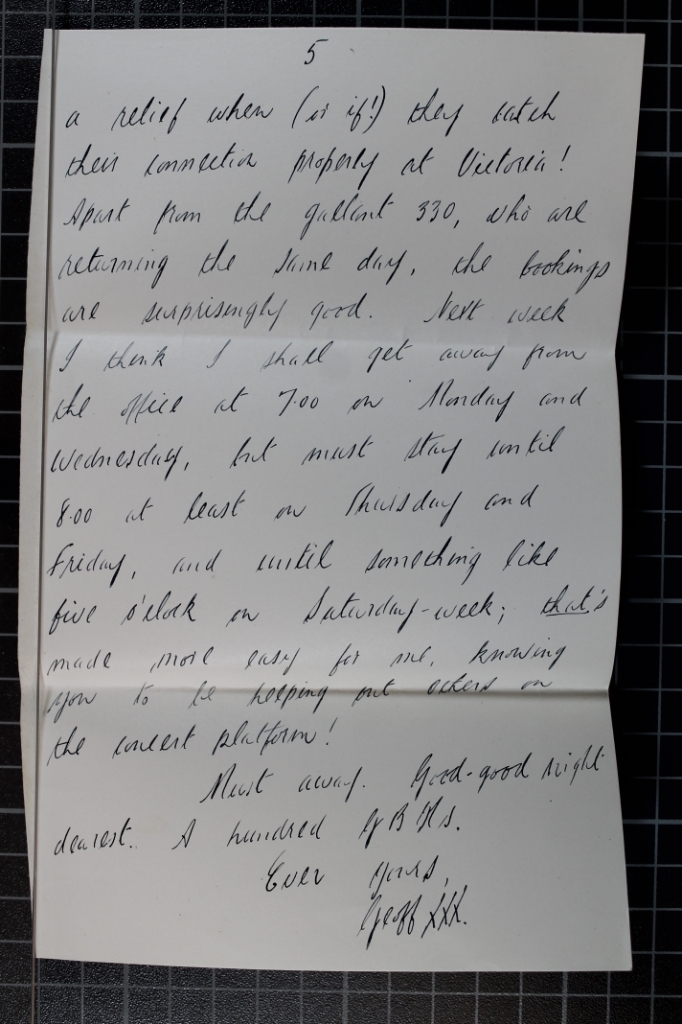 5
a relief when (or if!) they catch
their connection properly at Victoria!
Apart from the gallant 330, who are
returning the same day, the bookings
are surprisingly good. Next week
I think I shall get away from
the office at 7.00 on Monday and
Wednesday, but must stay until
8.00 at least on Thursday and
Friday, and until something like
five o'clock on Saturday-week; that's
made more easy for me, knowing
you to be helping out others on
the concert platform!
Must away. Good-good night
dearest. A hundred G B Hs.
Ever yours,
Geoff XXX.